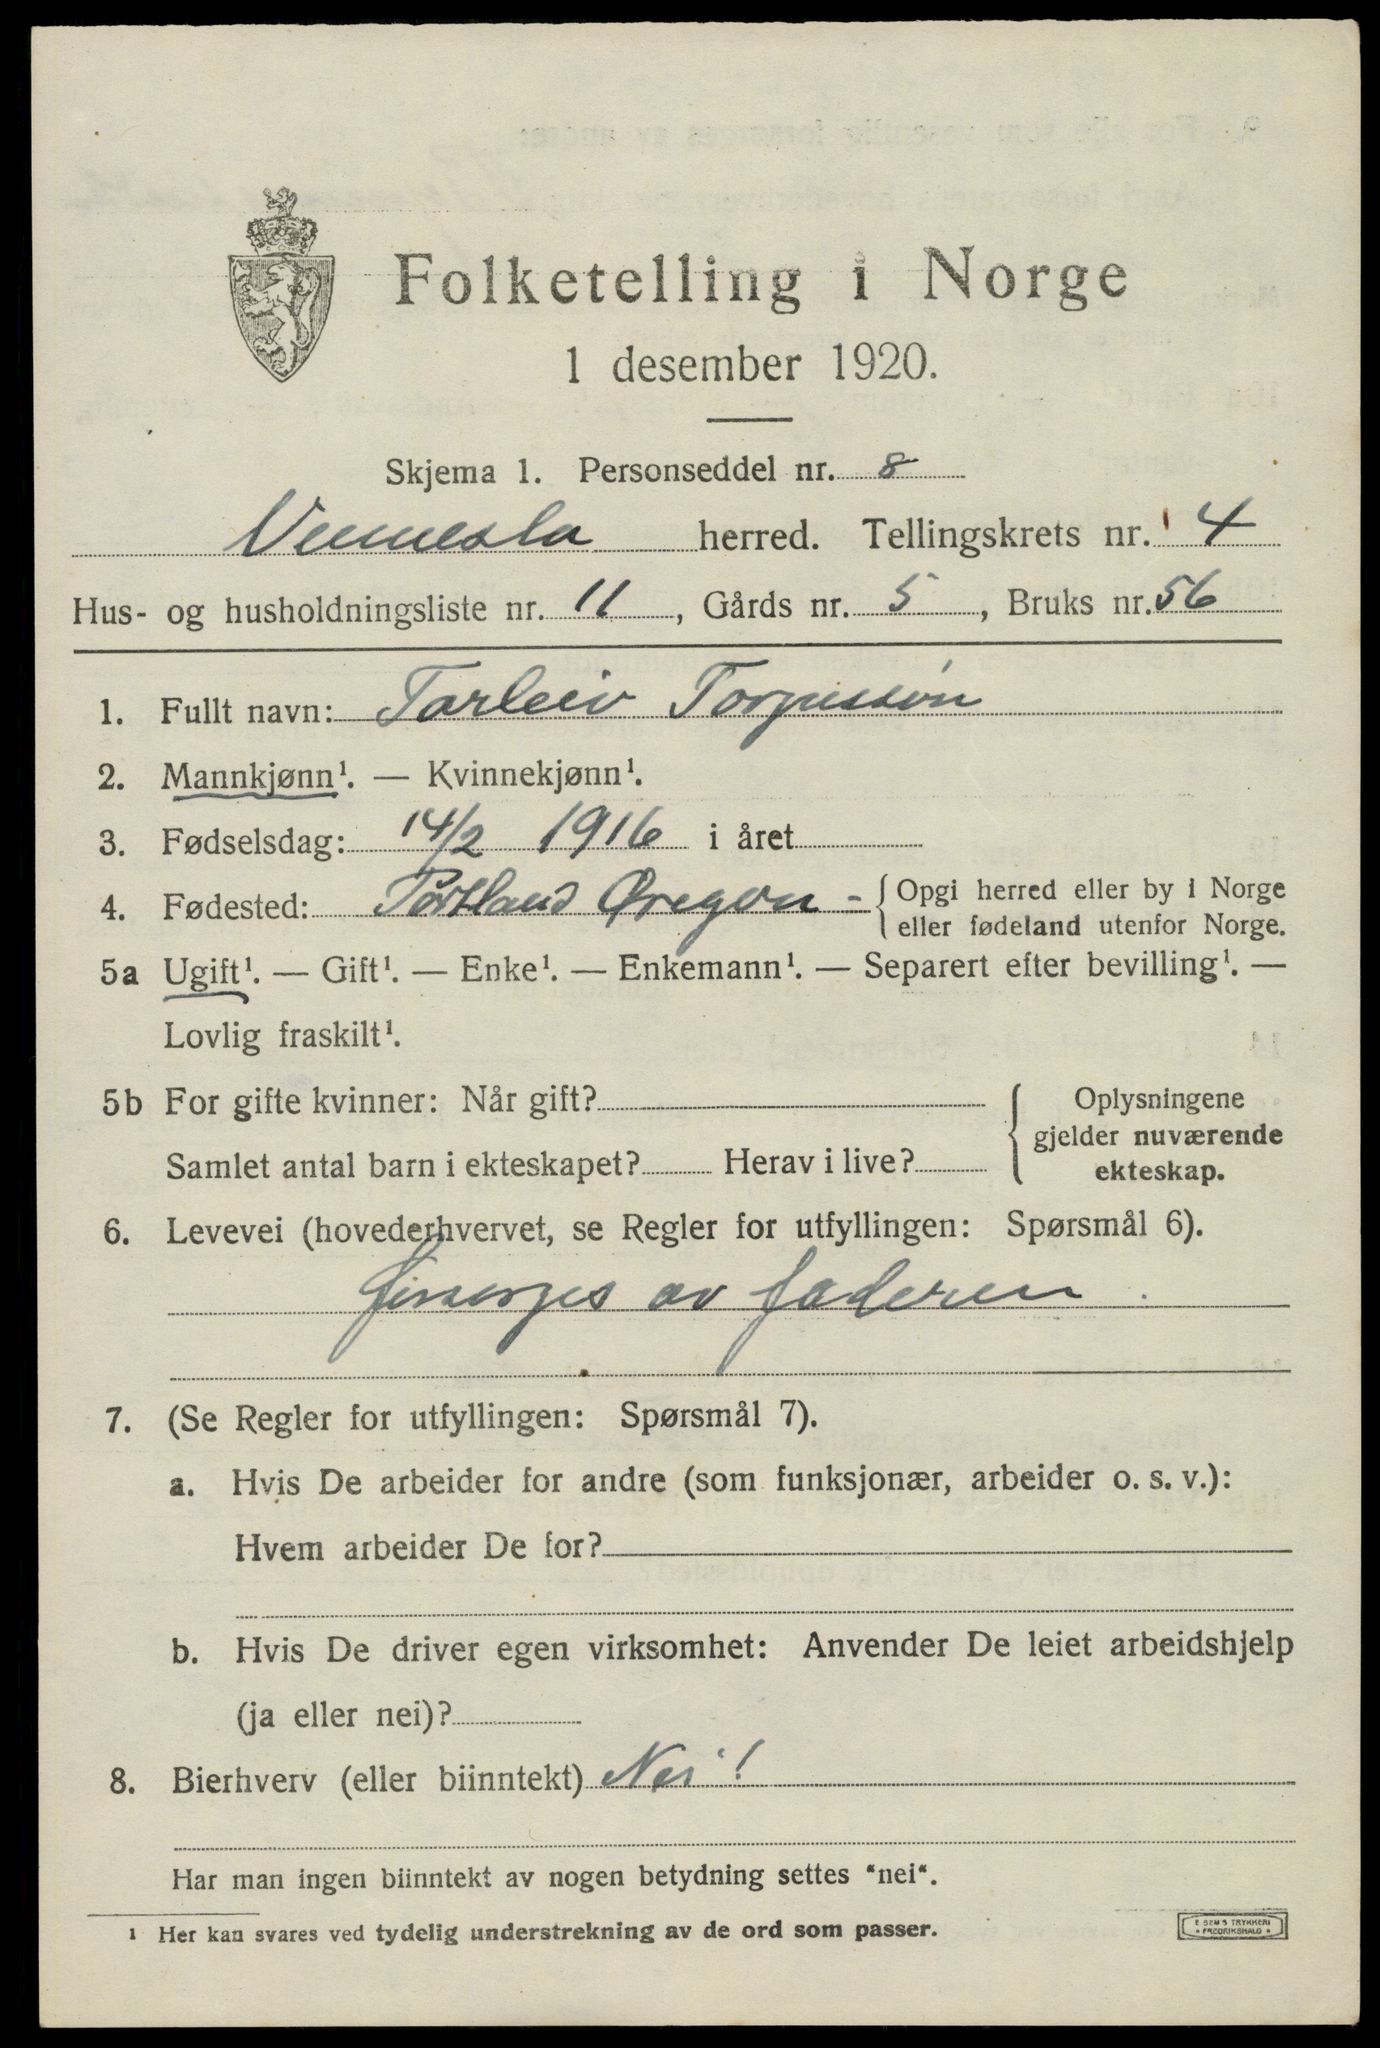 Folketelling i Norge
1 desember 1920.
Skjema 1. Personseddel nr. 8
Vennesla herred. Tellingskrets nr. 4
Hus- og husholdningsliste nr. 11, Gårds nr. 5, Bruks nr. 56
1. Fullt navn: Tarleiv Torjussøn
2. Mannkjønn¹. — Kvinnekjønn¹.
3. Fødselsdag: 14/2 1916 i året
4. Fødested: Portland Oregon - { Opgi herred eller by i Norge
eller fødeland utenfor Norge.
5a Ugift¹. — Gift¹. — Enke¹. — Enkemann¹. — Separert efter bevilling¹. —
Lovlig fraskilt¹.
5b For gifte kvinner: Når gift? { Oplysningene
gjelder nuværende
Samlet antal barn i ekteskapet? Herav i live? ekteskap.
6. Levevei (hovederhvervet, se Regler for utfyllingen: Spørsmål 6).
forsorges av faderen
7. (Se Regler for utfyllingen: Spørsmål 7).
a. Hvis De arbeider for andre (som funksjonær, arbeider o. s. v.):
Hvem arbeider De for?
b. Hvis De driver egen virksomhet: Anvender De leiet arbeidshjelp
(ja eller nei)?
8. Bierhverv (eller biinntekt) Nei!
Har man ingen biinntekt av nogen betydning settes "nei".
¹ Her kan svares ved tydelig understrekning av de ord som passer.
E. SEM'S TRYKKERI
• FREDRIKSHALD •